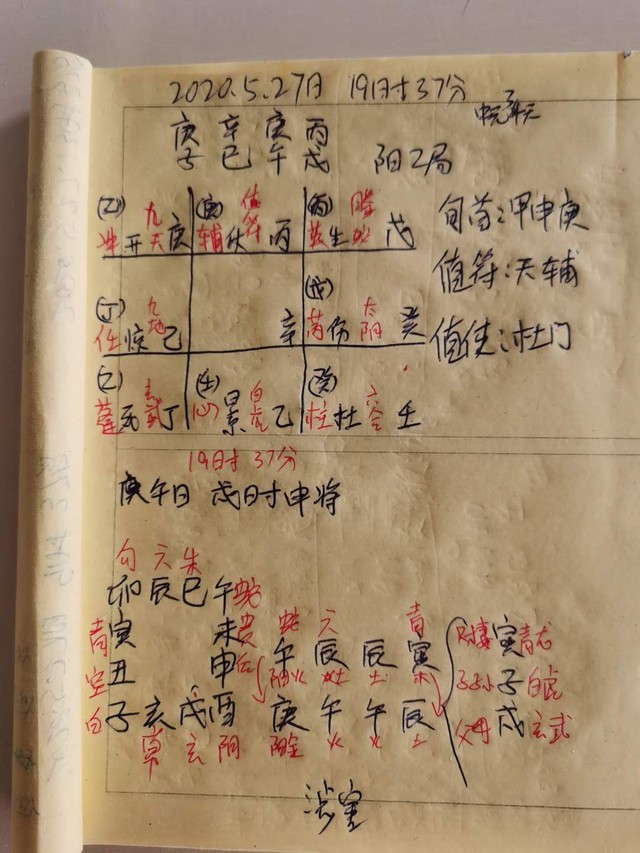 2020.5.27日 19时37分
庚 辛 庚 丙
子 巳 午 戌 阳二局
九 值符 螣蛇
天
开 庚 辅 伏 丙 生 戊
旬首:甲申庚
值符:天辅
值使:杜门
(丁) 九地 (戊)
任 惊 己 辛 芮 伤 太阴 癸
玄武 (壬) 白虎 (癸) 六合
蓬 死 丁 心 景 乙 柱 杜 壬
19时37分
庚午日 戌时申将
勾 六 朱
卯 辰 巳 午 蛇
青 寅 未 贵 蛇 六 青
空 丑 申 后 午 辰 辰 寅
白 子 亥 戌 酉 庚 午 午 辰
常 玄 阴
寅 青龙
子孙 子 白虎
父母 戌 玄武
涉害